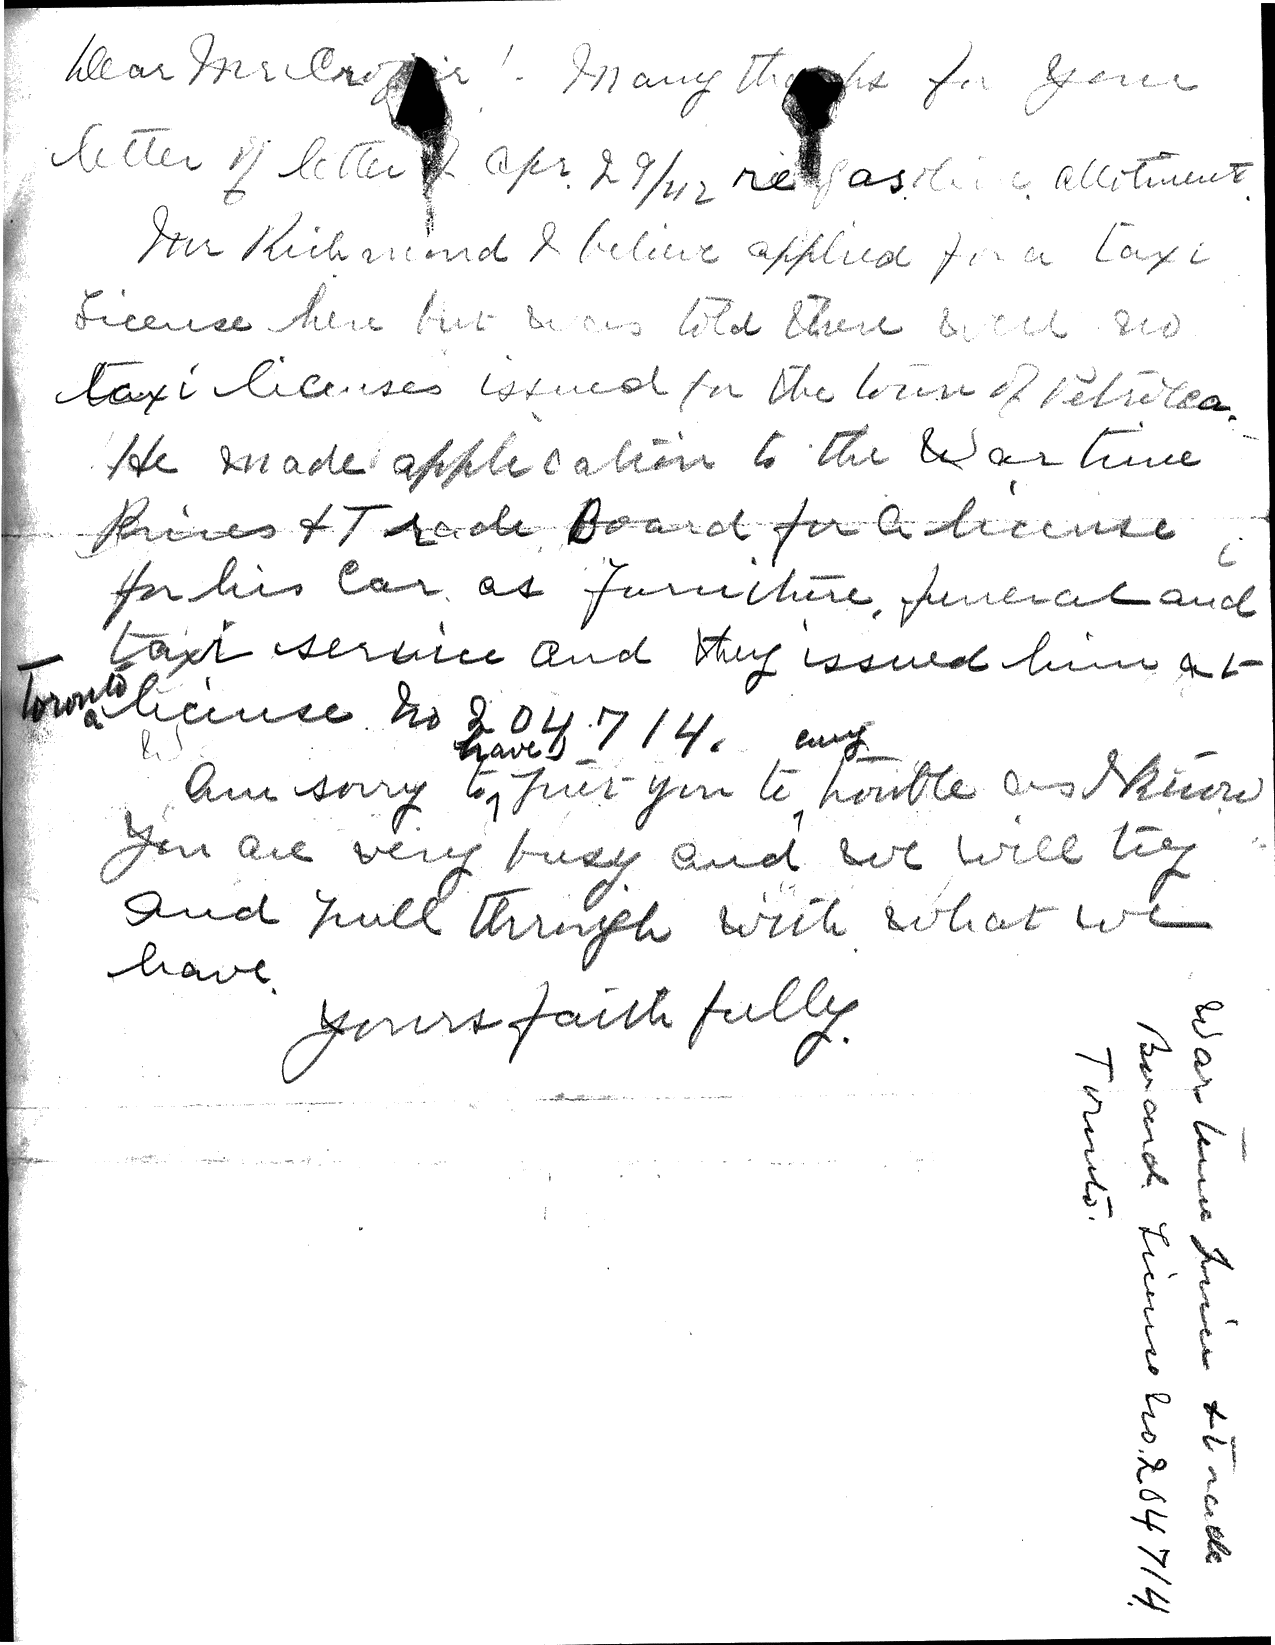 Dear Mr Crozier! Many thanks for your
letter of letter of Apr. 29/42 re gasoline allotment.
Mr Richmond I believe applied for a taxi
License here but was told there were no
taxi licenses issued for the town of Petrolea.
He made application to the War time
Prices & Trade Board for a license
for his Car as Furniture, funeral and
taxi service and they issued him at
Toronto a license No 204714.
have any
Am sorry to put you to trouble as I know
you are very busy and we will try
and pull through with what we
have.
Yours faithfully.
War time Prices & Trade
Board License No. 204714
Toronto.